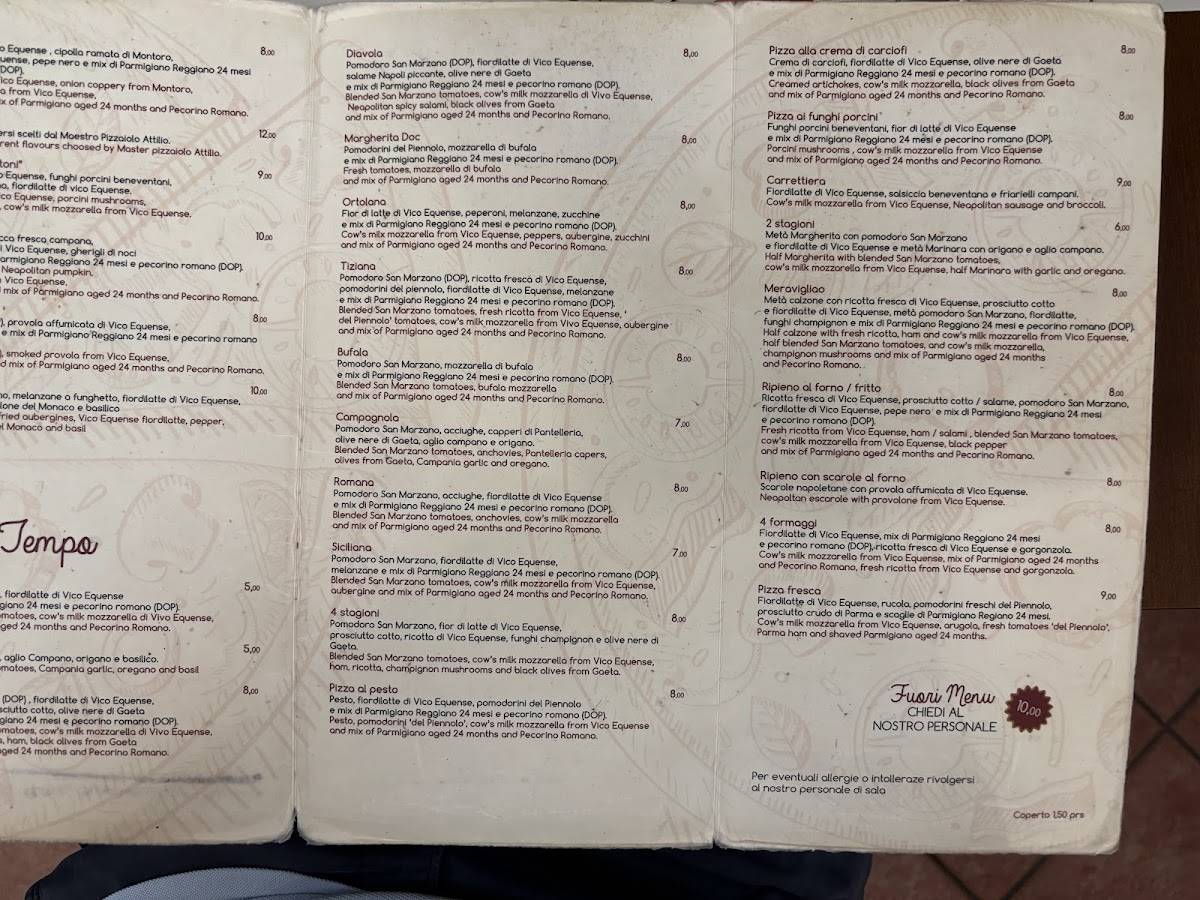 o Equense , cipolla ramata di Montoro, 8,00
uense, pepe nero e mix di Parmigiano Reggiano 24 mesi
DOP).
ico Equense, onion coppery from Montoro,
a from Vico Equense,
x of Parmigiano aged 24 months and Pecorino Romano.
ersi scelti dal Maestro Pizzaiolo Attilio. 12,00
rent flavours choosed by Master pizzaiolo Attilio.
toni"
o Equense, funghi porcini beneventani, 9,00
o, fiordilatte di vico Equense.
co Equense, porcini mushrooms,
, cow's milk mozzarella from Vico Equense.
cca fresca campana, 10,00
i Vico Equense, gherigli di noci
armigiano Reggiano 24 mesi e pecorino romano (DOP).
Neapolitan pumpkin,
Vico Equense,
mix of Parmigiano aged 24 months and Pecorino Romano.
), provola affumicata di Vico Equense, 8,00
e mix di Parmigiano Reggiano 24 mesi e pecorino romano
, smoked provola from Vico Equense,
d mix of Parmigiano aged 24 months and Pecorino Romano.
no, melanzane a funghetto, fiordilatte di Vico Equense, 10,00
ione del Monaco e basilico
fried aubergines, Vico Equense fiordilatte, pepper,
el Monaco and basil
Tempo
, fiordilatte di Vico Equense 5,00
giano 24 mesi e pecorino romano (DOP).
omatoes, cow's milk mozzarella di Vivo Equense,
ged 24 months and Pecorino Romano.
, aglio Campano, origano e basilico. 5,00
matoes, Campania garlic, oregano and basil
(DOP) , fiordilatte di Vico Equense, 8,00
sciutto cotto, olive nere di Gaeta
giano 24 mesi e pecorino romano (DOP).
omatoes, cow's milk mozzarella di Vivo Equense.
s, ham, black olives from Gaeta
aged 24 months and Pecorino Romano.
Diavola 8,00
Pomodoro San Marzano (DOP), fiordilatte di Vico Equense,
salame Napoli piccante, olive nere di Gaeta
e mix di Parmigiano Reggiano 24 mesi e pecorino romano (DOP).
Blended San Marzano tomatoes, cow's milk mozzarella di Vivo Equense,
Neapolitan spicy salami, black olives from Gaeta
and mix of Parmigiano aged 24 months and Pecorino Romano.
Margherita Doc 8,00
Pomodorini del Piennolo, mozzarella di bufala
e mix di Parmigiano Reggiano 24 mesi e pecorino romano (DOP).
Fresh tomatoes, mozzarella di bufala
and mix of Parmigiano aged 24 months and Pecorino Romano.
Ortolana 8,00
Fior di latte di Vico Equense, peperoni, melanzane, zucchine
e mix di Parmigiano Reggiano 24 mesi e pecorino romano (DOP).
Cow's milk mozzarella from Vico Equense, peppers, aubergine, zucchini
and mix of Parmigiano aged 24 months and Pecorino Romano.
Tiziana 8,00
Pomodoro San Marzano (DOP), ricotta fresca di Vico Equense,
pomodorini del piennolo, fiordilatte di Vico Equense, melanzane
e mix di Parmigiano Reggiano 24 mesi e pecorino romano (DOP).
Blended San Marzano tomatoes, fresh ricotta from Vico Equense, '
del Piennolo' tomatoes, cow's milk mozzarella from Vivo Equense, aubergine
and mix of Parmigiano aged 24 months and Pecorino Romano.
Bufala 8,00
Pomodoro San Marzano, mozzarella di bufala
e mix di Parmigiano Reggiano 24 mesi e pecorino romano (DOP).
Blended San Marzano tomatoes, bufala mozzarella
and mix of Parmigiano aged 24 months and Pecorino Romano.
Campagnola 7,00
Pomodoro San Marzano, acciughe, capperi di Pantelleria,
olive nere di Gaeta, aglio campano e origano.
Blended San Marzano tomatoes, anchovies, Pantelleria capers,
olives from Gaeta, Campania garlic and oregano.
Romana 8,00
Pomodoro San Marzano, acciughe, fiordilatte di Vico Equense
e mix di Parmigiano Reggiano 24 mesi e pecorino romano (DOP).
Blended San Marzano tomatoes, anchovies, cow's milk mozzarella
and mix of Parmigiano aged 24 months and Pecorino Romano.
Siciliana 7,00
Pomodoro San Marzano, fiordilatte di Vico Equense,
melanzane e mix di Parmigiano Reggiano 24 mesi e pecorino romano (DOP).
Blended San Marzano tomatoes, cow's milk mozzarella from Vico Equense,
aubergine and mix of Parmigiano aged 24 months and Pecorino Romano.
4 stagioni 8,00
Pomodoro San Marzano, fior di latte di Vico Equense,
prosciutto cotto, ricotta di Vico Equense, funghi champignon e olive nere di
Gaeta.
Blended San Marzano tomatoes, cow's milk mozzarella from Vico Equense,
ham, ricotta, champignon mushrooms and black olives from Gaeta.
Pizza al pesto 8,00
Pesto, fiordilatte di Vico Equense, pomodorini del Piennolo
e mix di Parmigiano Reggiano 24 mesi e pecorino romano (DOP).
Pesto, pomodorini 'del Piennolo', cow's milk mozzarella from Vico Equense
and mix of Parmigiano aged 24 months and Pecorino Romano.
Pizza alla crema di carciofi 8,00
Crema di carciofi, fiordilatte di Vico Equense, olive nere di Gaeta
e mix di Parmigiano Reggiano 24 mesi e pecorino romano (DOP).
Creamed artichokes, cow's milk mozzarella, black olives from Gaeta
and mix of Parmigiano aged 24 months and Pecorino Romano.
Pizza ai funghi porcini 8,00
Funghi porcini beneventani, fior di latte di Vico Equense
e mix di Parmigiano Reggiano 24 mesi e pecorino romano (DOP).
Porcini mushrooms , cow's milk mozzarella from Vico Equense
and mix of Parmigiano aged 24 months and Pecorino Romano.
Carrettiera 9,00
Fiordilatte di Vico Equense, salsiccia beneventana e friarielli campani.
Cow's milk mozzarella from Vico Equense, Neapolitan sausage and broccoli.
2 stagioni 6,00
Metà Margherita con pomodoro San Marzano
e fiordilatte di Vico Equense e metà Marinara con origano e aglio campano.
Half Margherita with blended San Marzano tomatoes,
cow's milk mozzarella from Vico Equense, half Marinara with garlic and oregano.
Meravigliao 8,00
Metà calzone con ricotta fresca di Vico Equense, prosciutto cotto
e fiordilatte di Vico Equense, metà pomodoro San Marzano, fiordilatte,
funghi champignon e mix di Parmigiano Reggiano 24 mesi e pecorino romano (DOP).
Half calzone with fresh ricotta, ham and cow's milk mozzarella from Vico Equense,
half blended San Marzano tomatoes, and cow's milk mozzarella,
champignon mushrooms and mix of Parmigiano aged 24 months
and Pecorino Romano.
Ripieno al forno / fritto 8,00
Ricotta fresca di Vico Equense, prosciutto cotto / salame, pomodoro San Marzano,
fiordilatte di Vico Equense, pepe nero e mix di Parmigiano Reggiano 24 mesi
e pecorino romano (DOP).
Fresh ricotta from Vico Equense, ham / salami , blended San Marzano tomatoes,
cow's milk mozzarella from Vico Equense, black pepper
and mix of Parmigiano aged 24 months and Pecorino Romano.
Ripieno con scarole al forno 8,00
Scarole napoletane con provola affumicata di Vico Equense.
Neapoltan escarole with provolone from Vico Equense.
4 formaggi 8,00
Fiordilatte di Vico Equense, mix di Parmigiano Reggiano 24 mesi
e pecorino romano (DOP), ricotta fresca di Vico Equense e gorgonzola.
Cow's milk mozzarella from Vico Equense, mix of Parmigiano aged 24 months
and Pecorino Romano, fresh ricotta from Vico Equense and gorgonzola.
Pizza fresca 9,00
Fiordilatte di Vico Equense, rucola, pomodorini freschi del Piennolo,
prosciutto crudo di Parma e scaglie di Parmigiano Regiano 24 mesi.
Cow's milk mozzarella from Vico Equense, arugola, fresh tomatoes 'del Piennolo',
Parma ham and shaved Parmigiano aged 24 months.
Fuori Menu
CHIEDI AL
NOSTRO PERSONALE
10,00
Per eventuali allergie o intolleraze rivolgersi
al nostro personale di sala
Coperto 1,50 prs